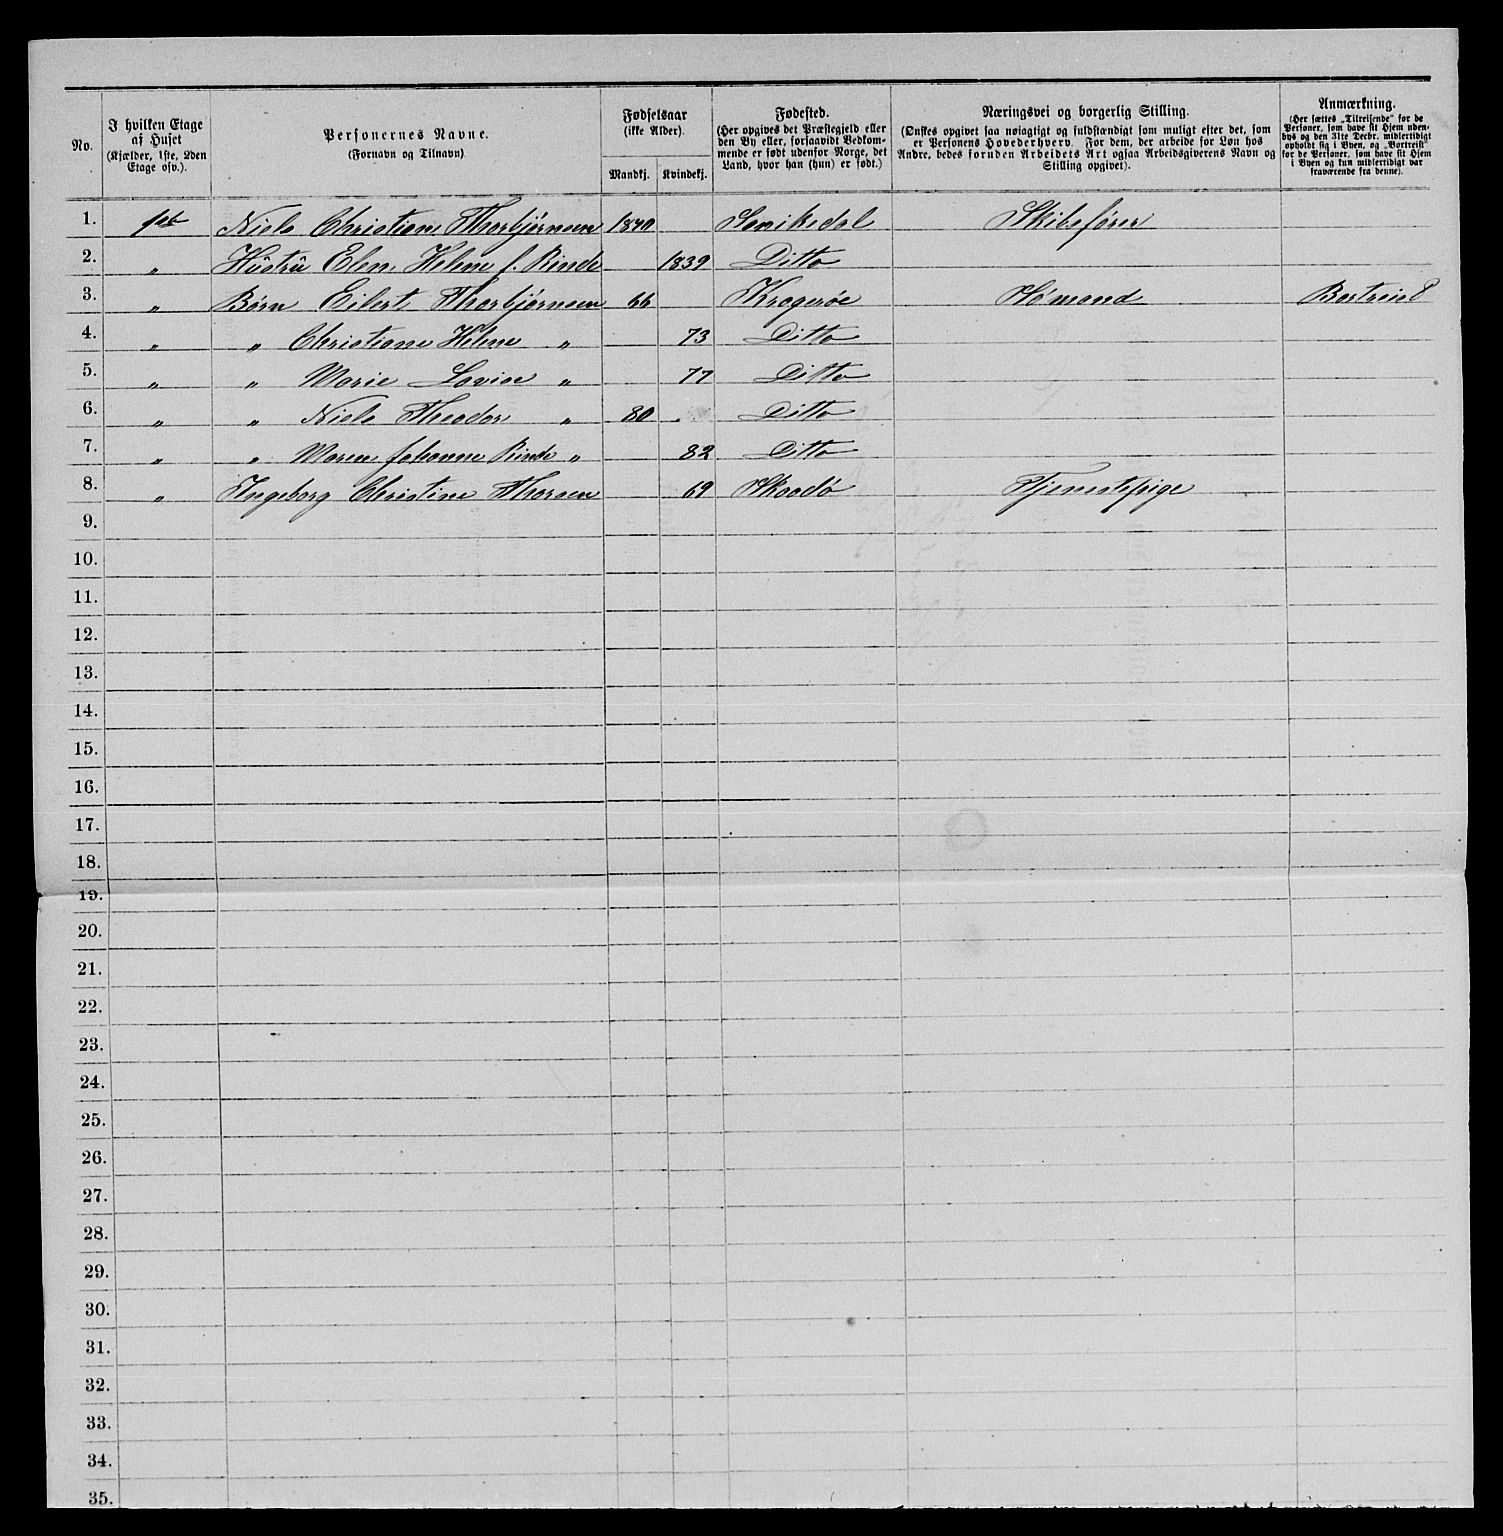 No.
I hvilken Etage af Huset (Kjælder, 1ste, 2den Etage osv.).
Personernes Navne. (Fornavn og Tilnavn)
Fødselsaar (ikke Alder).
Mandkj. Kvindekj.
Fødested. (Her opgives det Præstegjeld eller den By eller, forsaavidt Vedkommende er født udenfor Norge, det Land, hvor han (hun) er født.)
Næringsvei og borgerlig Stilling. (Ønskes opgivet saa nøiagtigt og fuldstændigt som muligt efter det, som er Personens Hovederhverv. For dem, der arbeide for Løn hos Andre, bedes foruden Arbeidets Art ogsaa Arbeidsgiverens Navn og Stilling opgivet).
Anmærkning. (Her sættes „Tilreisende“ for de Personer, som have sit Hjem udenbys og den 31te Decbr. midlertidigt opholdt sig i Byen, og „Bortreist“ for de Personer, som have sit Hjem i Byen og kun midlertidigt var fraværende fra denne).
1. 1ste Niels Christian Thorbjørnsen 1840 Sanikedal Skibsfører
2. „ Hustru Elen Helene f. Rinde 1839 Ditto
3. „ Børn Eilert Thorbjørnsen 66 Kragerøe Sømand Bortreist
4. „ „ Christiane Helene „ 73 Ditto
5. „ „ Marie Lovise „ 77 Ditto
6. „ „ Niels Theodor „ 80 Ditto
7. „ „ Maren Johanne Rinde „ 82 Ditto
8. „ Ingeborg Christine Thorsen 69 Skaadø Tjenestepige
9.
10.
11.
12.
13.
14.
15.
16.
17.
18.
19.
20.
21.
22.
23.
24.
25.
26.
27.
28.
29.
30.
31.
32.
33.
34.
35.